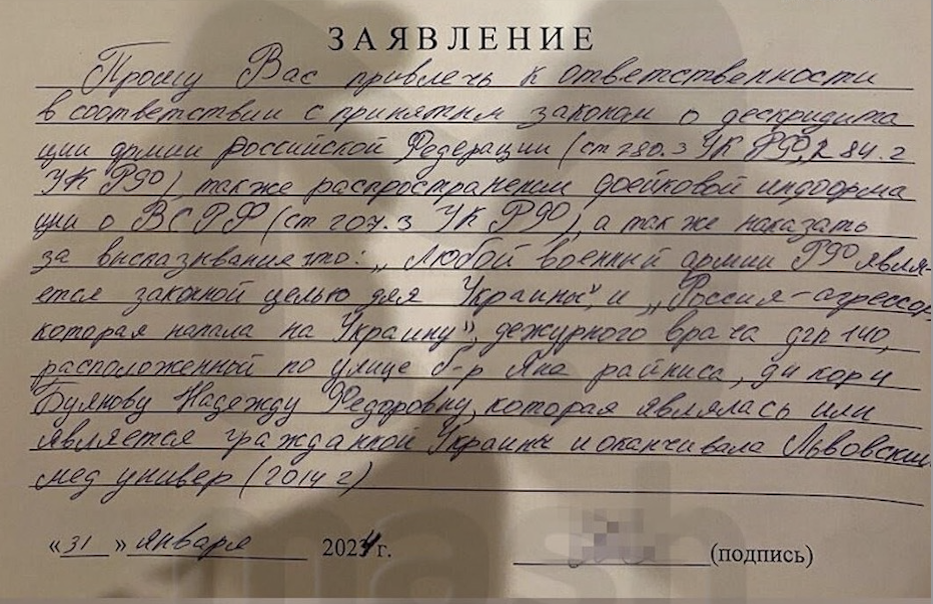 ЗАЯВЛЕНИЕ
Прошу Вас привлечь к ответственности
в соответствии с принятым законом о дескридита
ции армии Российской Федерации (ст 280.3 УК РФ, 284.2
УК РФ), также распространении фейковой информа
ции о ВС РФ (ст 207.3 УК РФ), а также наказать
за высказывания это: „Любой военный армии РФ явля-
ется законной целью для Украины", и „Россия-агрессор,
которая напала на Украину", дежурного врача дгп 140,
расположенной по улице б-р Яна райниса, д4 кор 4
Буянову Надежду Федоровну, которая являлась или
является гражданкой Украины и оканчивала Львовский
мед универ (2014 г)
«31» января 2024 г. (подпись)
mash